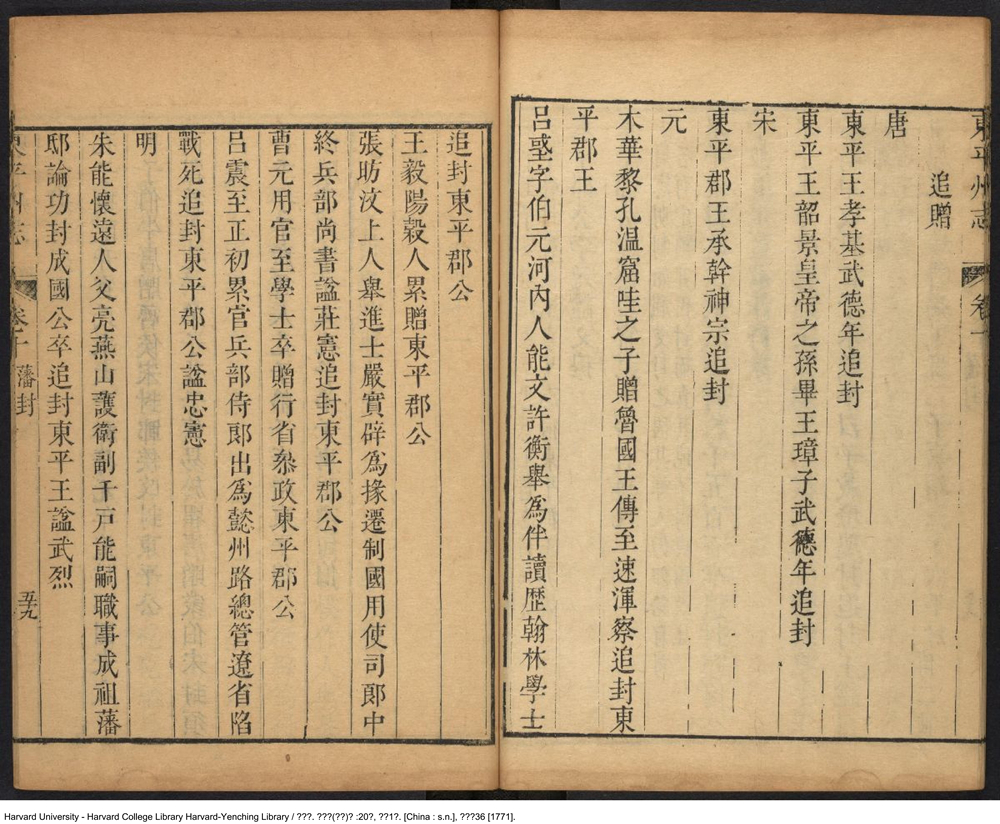 東平州志 卷十
追贈
唐
東平王孝基武德年追封
東平王韶景皇帝之孫畢王璋子武德年追封
宋
東平郡王承幹神宗追封
元
木華黎孔溫窟哇之子贈魯國王傳至速渾察追封東
平郡王
呂㙯字伯元河內人能文許衡舉為伴讀歴翰林學士
追封東平郡公
王毅陽穀人累贈東平郡公
張昉汶上人舉進士嚴實辟為掾遷制國用使司郎中
終兵部尚書諡莊憲追封東平郡公
曹元用官至學士卒贈行省叅政東平郡公
呂震至正初累官兵部侍郎出為懿州路總管遼省陷
戰死追封東平郡公諡忠憲
明
朱能懷遠人父亮燕山護衛副千戶能嗣職事成祖藩
邸論功封成國公卒追封東平王諡武烈
東平州志 卷十 藩封 五九
Harvard University - Harvard College Library Harvard-Yenching Library / ???. ???(??)? :20?, ??1?. [China : s.n.], ???36 [1771].